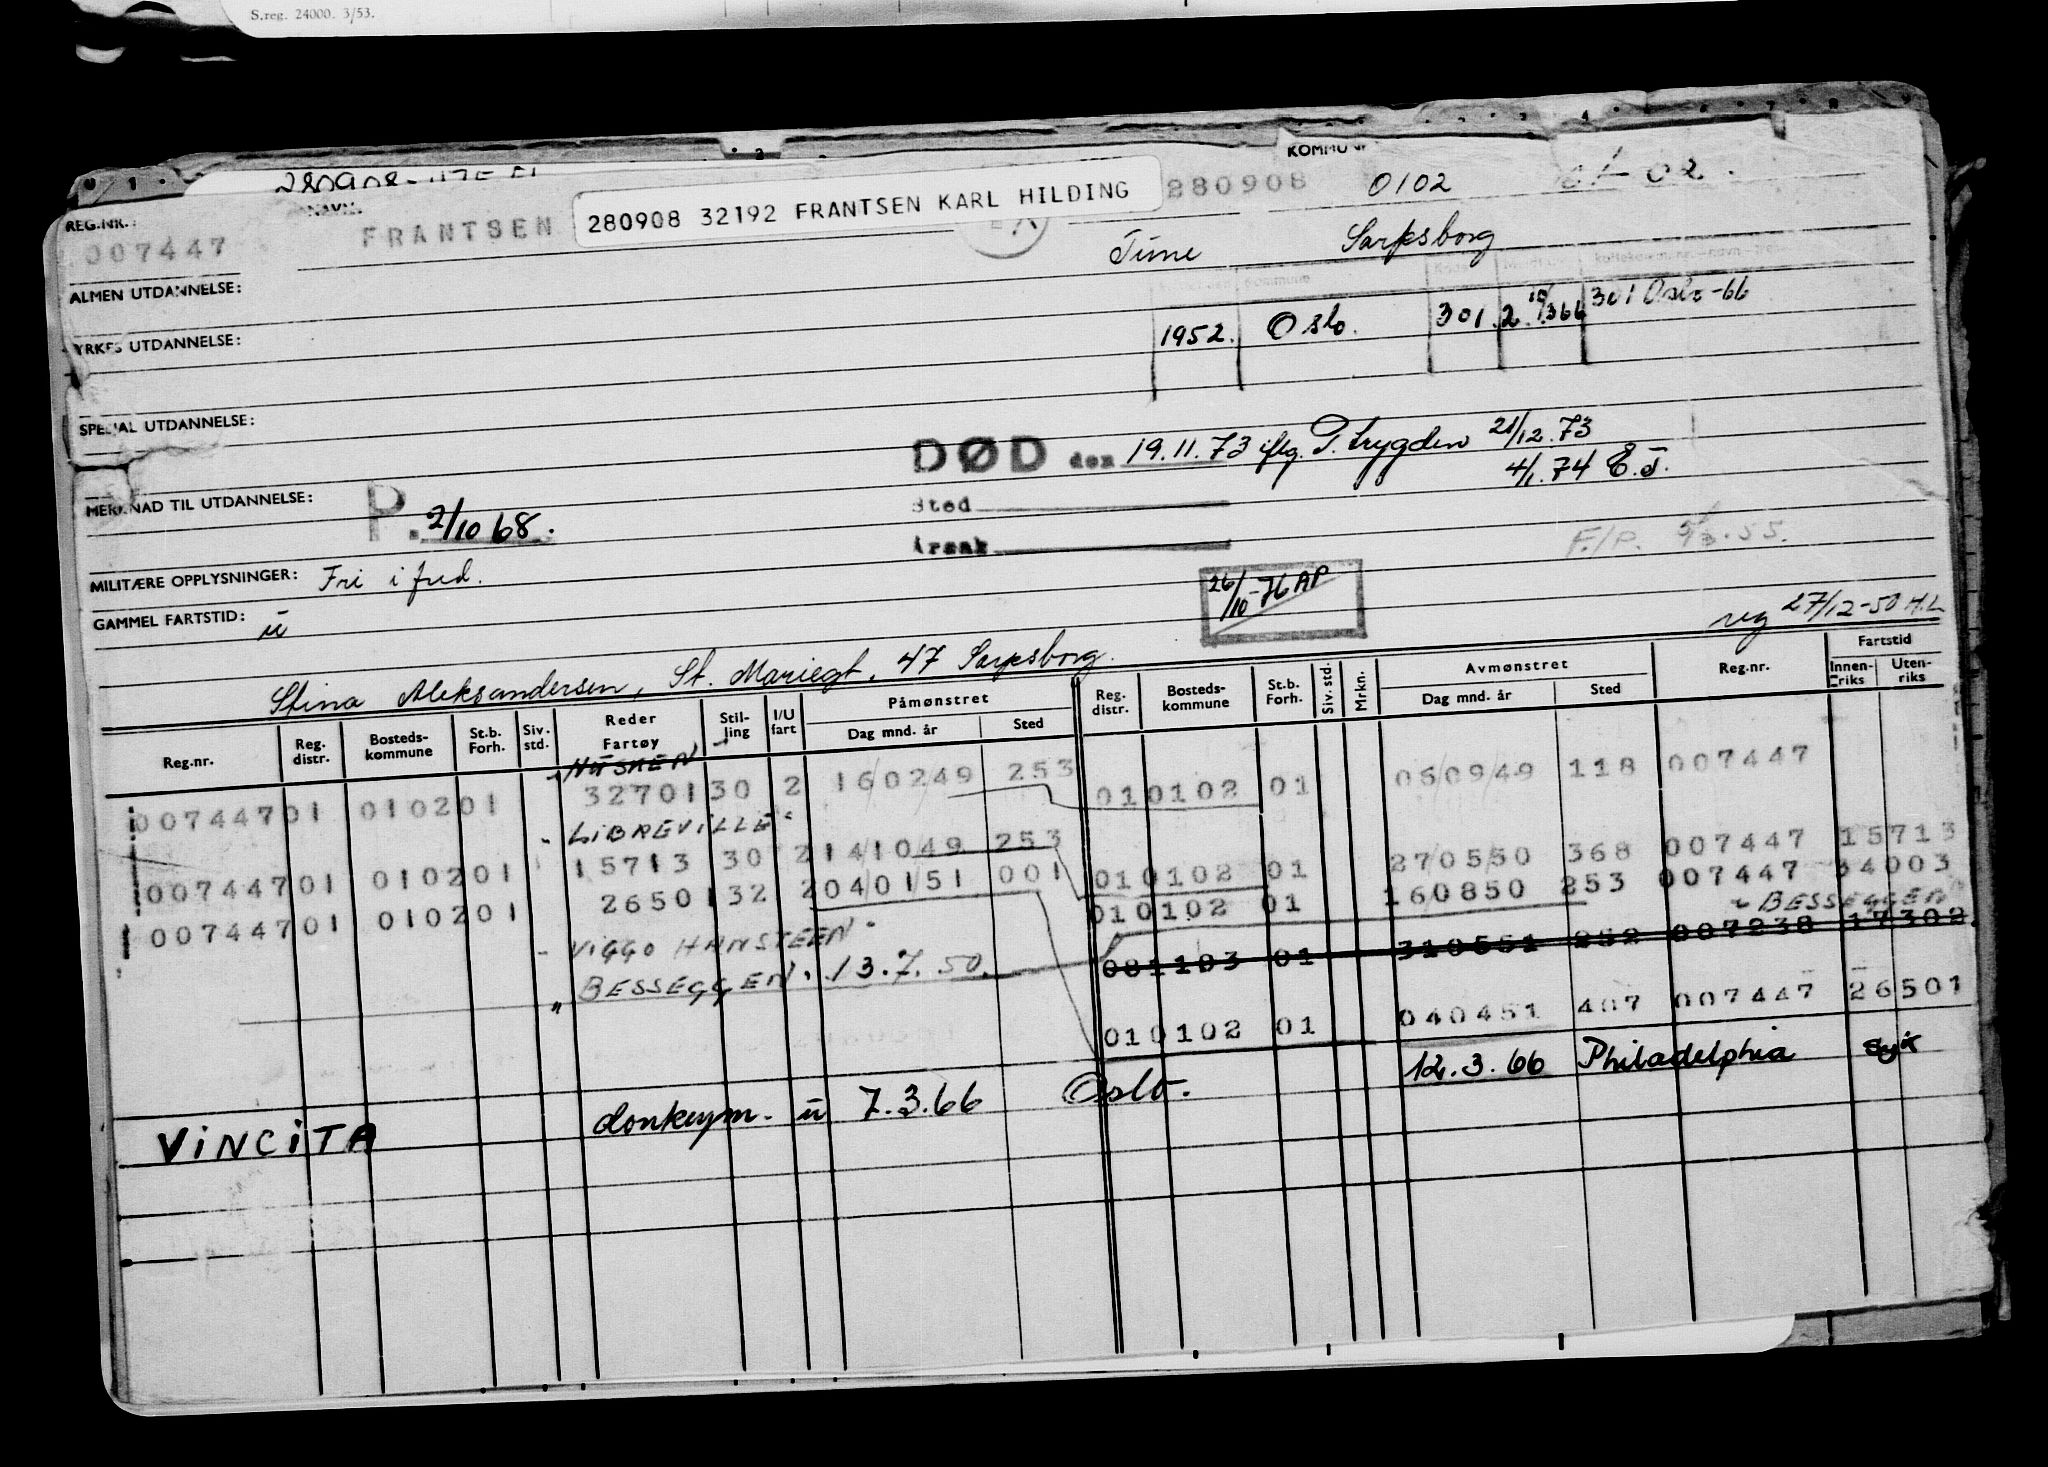 S.reg. 24000. 3/53.
REG.NR.: 007447
FRANTSEN
280908 32192 FRANTSEN KARL HILDING
280908
0102
01-02.
Tune Sarpsborg
ALMEN UTDANNELSE:
YRKES UTDANNELSE:
1952. Oslo. 301. 2. 10/3 66 301 Oslo-66
SPECIAL UTDANNELSE:
DØD den 19.11.73 iflg. P.trygden 21/12.73
4/1.74 E.T.
MERKNAD TIL UTDANNELSE: P. 2/10 68.
Sted
Årsak
F./P. 9/3.55.
MILITÆRE OPPLYSNINGER: Fri i fred.
26/10-76 AP
GAMMEL FARTSTID: u
reg 27/12-50 H.L
Stina Aleksandersen, St. Mariegt. 47 Sarpsborg.
Reg.nr. Reg. distr. Bosteds-kommune St.b. Forh. Siv. std. Reder Fartøy Stil-ling I/U fart Påmønstret Dag mnd. år Sted Reg. distr. Bosteds-kommune St.b. Forh. Siv. std. Mrkn. Avmønstret Dag mnd. år Sted Reg.nr. Fartstid Innen-riks Uten-riks
00744701 010201 32701 30 2 160249 253 010102 01 050949 118 007447
"LIBREVILLE"
00744701 010201 15713 30 2 141049 253 010102 01 270550 368 007447 15713
00744701 010201 26501 32 2 040151 001 010102 01 160850 253 007447 34003
"BESSEGGEN
"VIGGO HANSTEEN"
081103 01 310551 252 007238 17302
"BESSEGGEN" 13.7.50.
010102 01 040451 407 007447 26501
VINCITA donkeym. u 7.3.66 Oslo. 12.3.66 Philadelphia syk